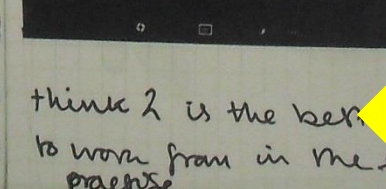 think 2 is the best
to work from in the
practise